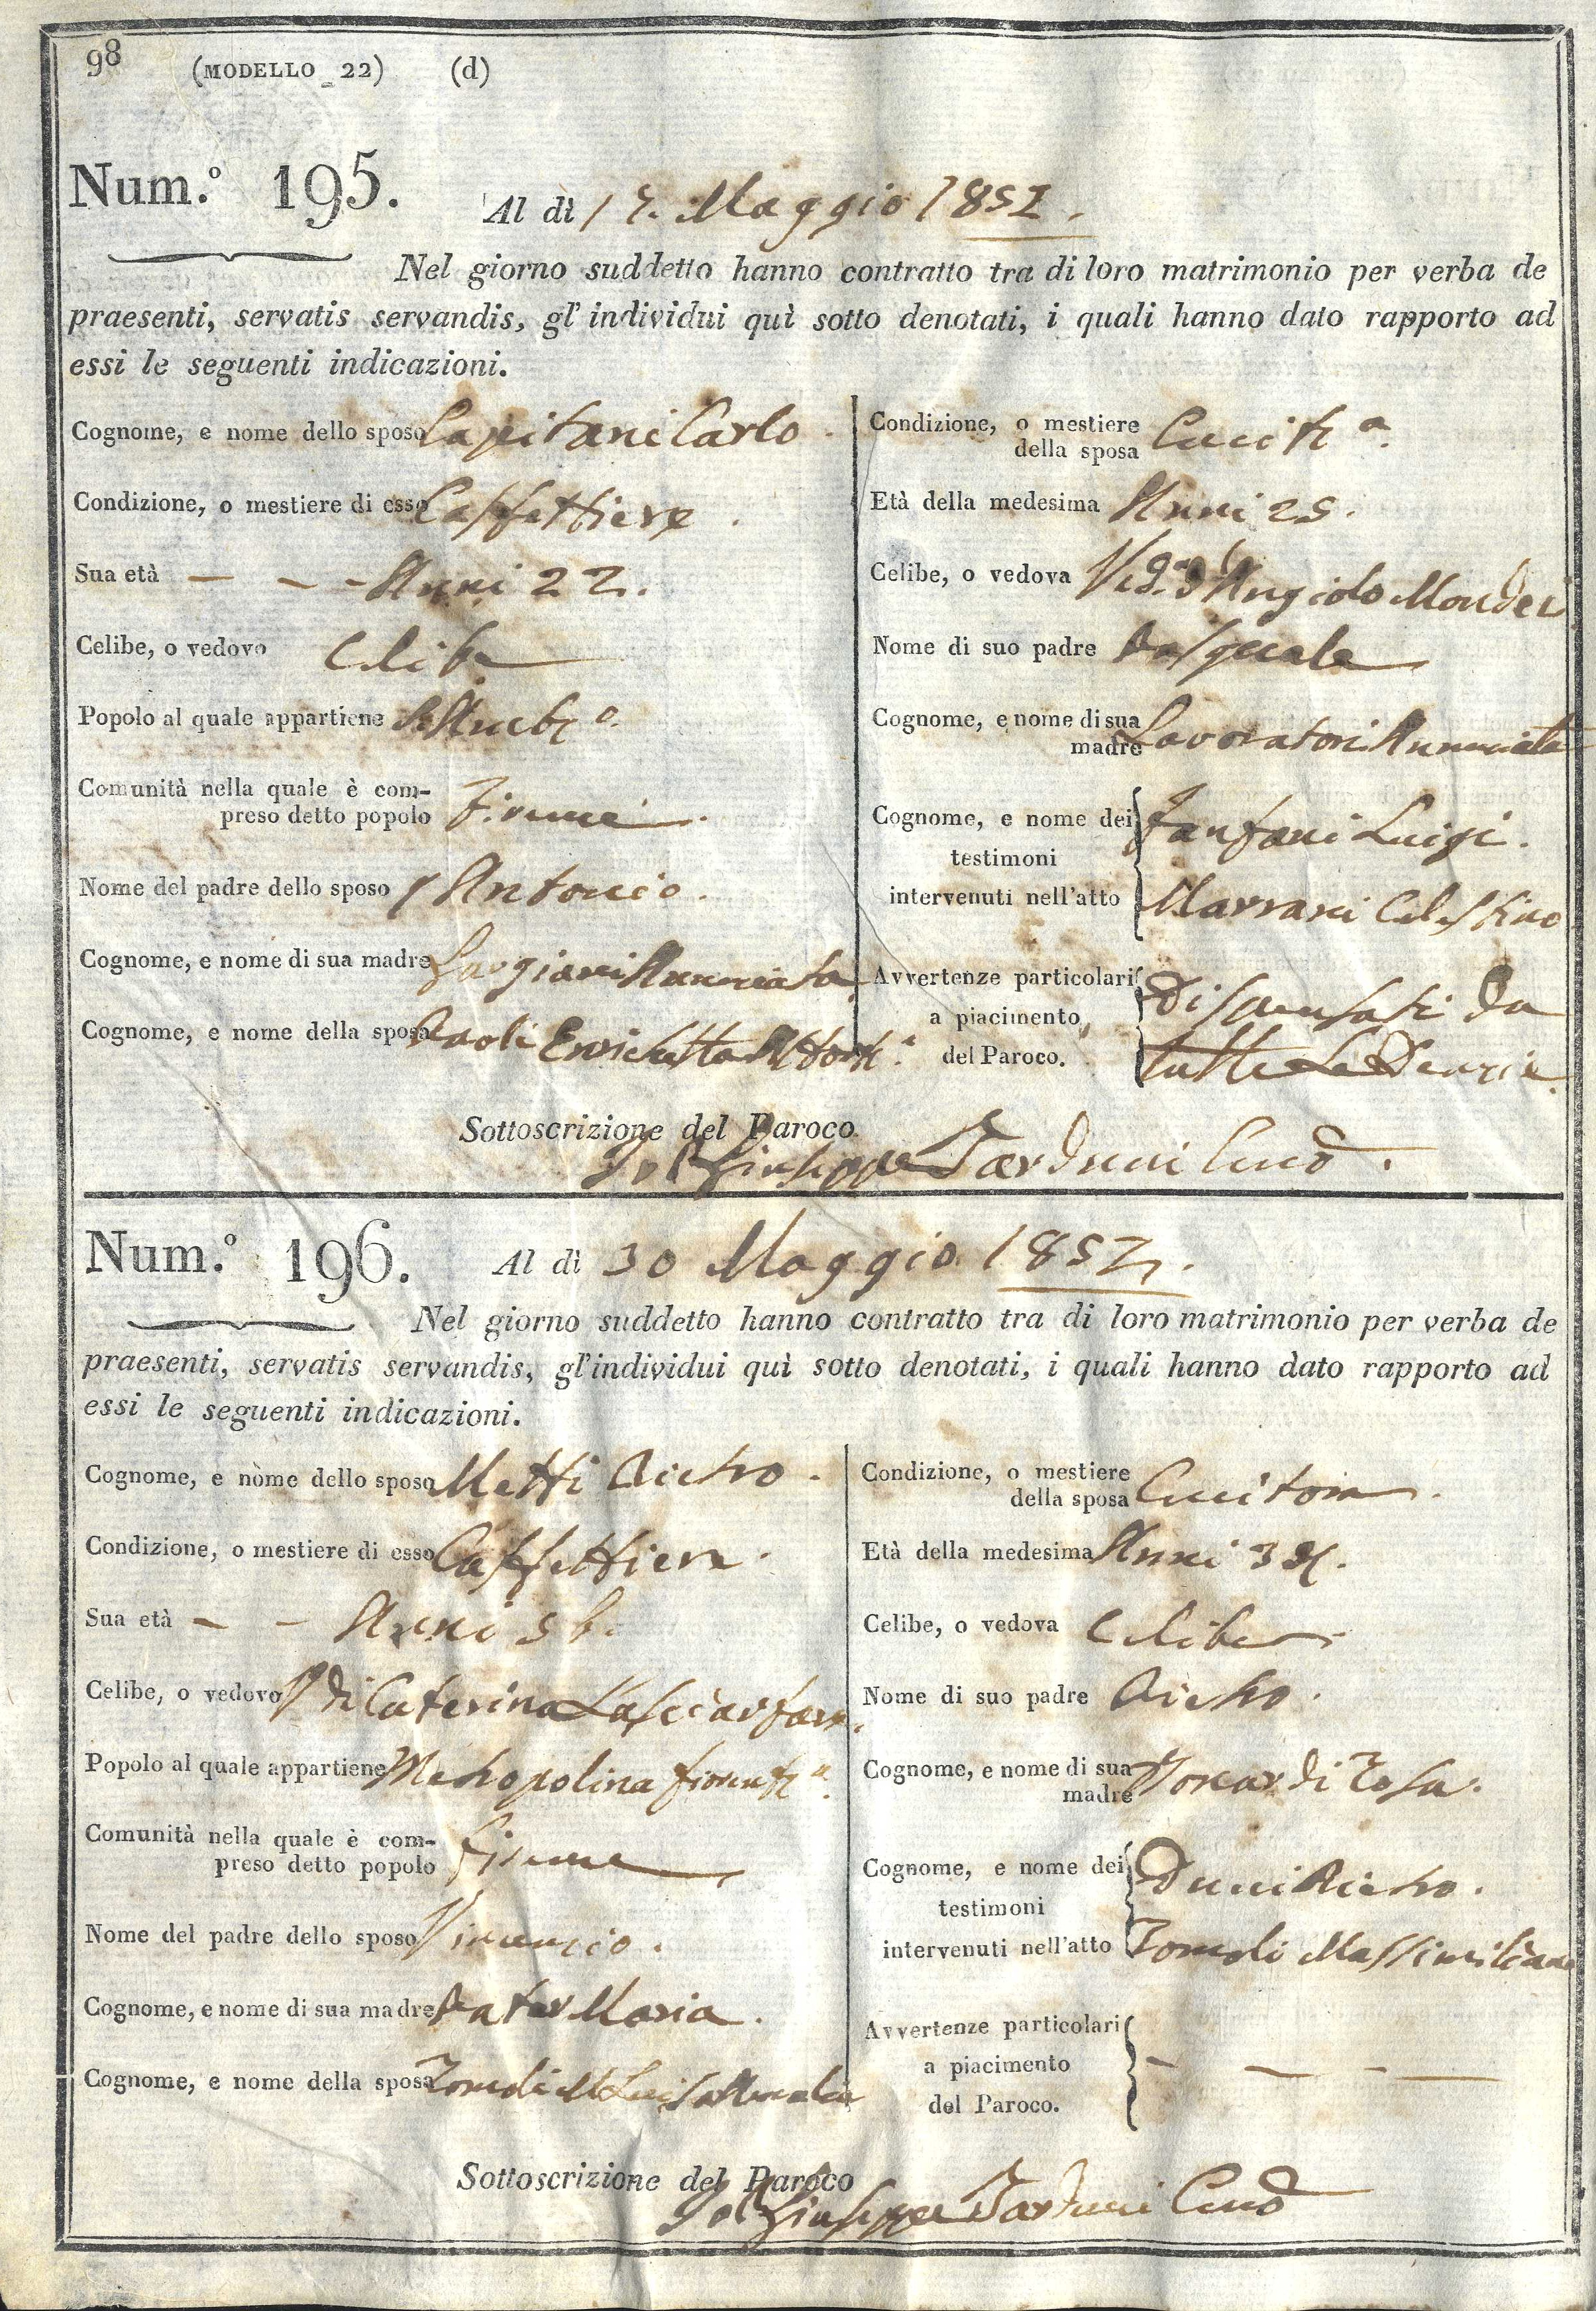 98 (MODELLO 22) (d)
Num.º 195. Al dì 17. Maggio 1852.
Nel giorno suddetto hanno contratto tra di loro matrimonio per verba de
praesenti, servatis servandis, gl' individui quì sotto denotati, i quali hanno dato rapporto ad
essi le seguenti indicazioni.
Cognome, e nome dello sposo Capitani Carlo.
Condizione, o mestiere di esso Caffettiere.
Sua età - - - Anni 22.
Celibe, o vedovo Celibe
Popolo al quale appartiene
Comunità nella quale è com-
preso detto popolo Firenze.
Nome del padre dello sposo Antonio.
Cognome, e nome di sua madre Annunciata
Cognome, e nome della sposa Paoli Enrichetta
Condizione, o mestiere
della sposa Cucitr.ª
Età della medesima Anni 25.
Celibe, o vedova Ved.ª d'Angiolo
Nome di suo padre Pasquale
Cognome, e nome di sua
madre Lavoratori Annunciata
Cognome, e nome dei
testimoni Fanfani Luigi.
intervenuti nell'atto Marrani Celestino
Avvertenze particolari
a piacimento
del Paroco.
Dispensati da
tutte le Denunzie.
Sottoscrizione del Paroco
Giuseppe Tarducci
Num.º 196. Al dì 30 Maggio 1852.
Nel giorno suddetto hanno contratto tra di loro matrimonio per verba de
praesenti, servatis servandis, gl' individui quì sotto denotati, i quali hanno dato rapporto ad
essi le seguenti indicazioni.
Cognome, e nome dello sposo Metti Pietro.
Condizione, o mestiere di esso Caffettiere.
Sua età - - Anni 56.
Celibe, o vedovo V di Caterina Lasciarfare.
Popolo al quale appartiene Metropolina fiorent.ª
Comunità nella quale è com-
preso detto popolo firenze
Nome del padre dello sposo Vincenzio.
Cognome, e nome di sua madre Pater Maria.
Cognome, e nome della sposa
Condizione, o mestiere
della sposa Cucitora.
Età della medesima Anni
Celibe, o vedova Celibe
Nome di suo padre Pietro.
Cognome, e nome di sua
madre Rosa.
Cognome, e nome dei
testimoni Ducci Pietro.
intervenuti nell'atto Massimiliano
Avvertenze particolari
a piacimento - - - -
del Paroco.
Sottoscrizione del Paroco
Giuseppe Tarducci